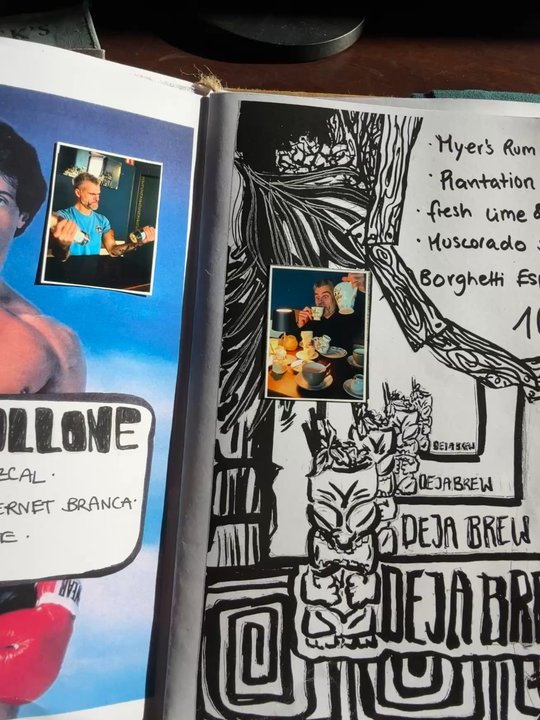 K'S
OLLONE
ZCAL ·
ERNET BRANCA ·
E ·
· Myer's Rum
· Plantation
· fresh Lime &
· Muscorado
Borghetti Esp
DEJA BREW
DEJA BREW
DEJA BREW
DEJA BRE